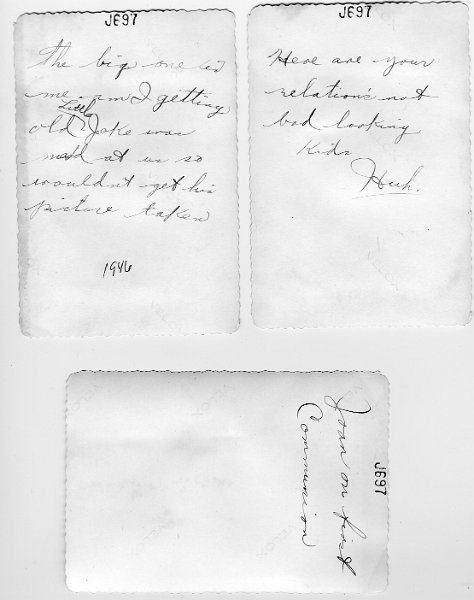 J697
The big one is
me am I getting
Little
old? Jake was
mad at us so
wouldnt get his
picture taken
1946
J697
Here are your
relation's not
bad looking
Kids
Huh.
J697
Joan on first
Communion